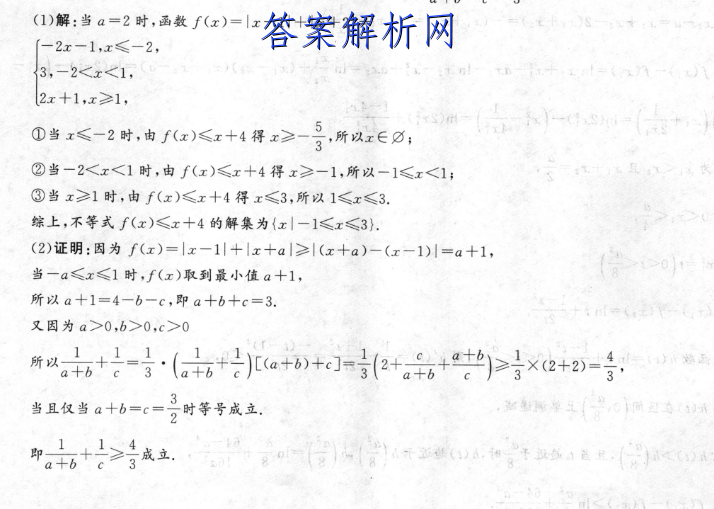 (1)解:当 a=2 时,函数 f(x)=|x
答案解析网
{-2x-1,x≤-2,
3,-2<x<1,
2x+1,x≥1,
①当 x≤-2 时,由 f(x)≤x+4 得 x≥-5/3,所以x∈∅;
②当-2<x<1 时,由 f(x)≤x+4 得 x≥-1,所以-1≤x<1;
③当 x≥1 时,由 f(x)≤x+4 得 x≤3,所以 1≤x≤3.
综上,不等式 f(x)≤x+4 的解集为{x|-1≤x≤3}.
(2)证明:因为 f(x)=|x-1|+|x+a|≥|(x+a)-(x-1)|=a+1,
当-a≤x≤1 时,f(x)取到最小值 a+1,
所以 a+1=4-b-c,即 a+b+c=3.
又因为 a>0,b>0,c>0
所以 1/(a+b)+1/c=1/3·(1/(a+b)+1/c)[(a+b)+c]=1/3(2+c/(a+b)+(a+b)/c)≥1/3×(2+2)=4/3,
当且仅当 a+b=c=3/2时等号成立.
即 1/(a+b)+1/c≥4/3成立.